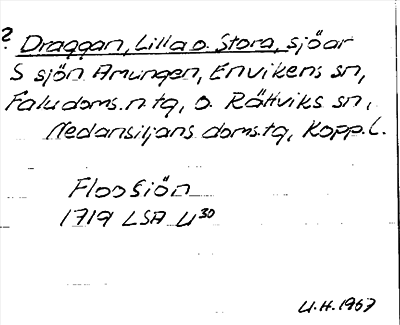 ? Draggan, Lilla o. Stora, sjöar
S sjön Amungen, Envikens sn,
Falu doms.n tg, o. Rättviks sn,
Nedansiljans doms.tg, Kopp.l.
Floo Siön
1719 LSA U³⁰
U.H. 1967